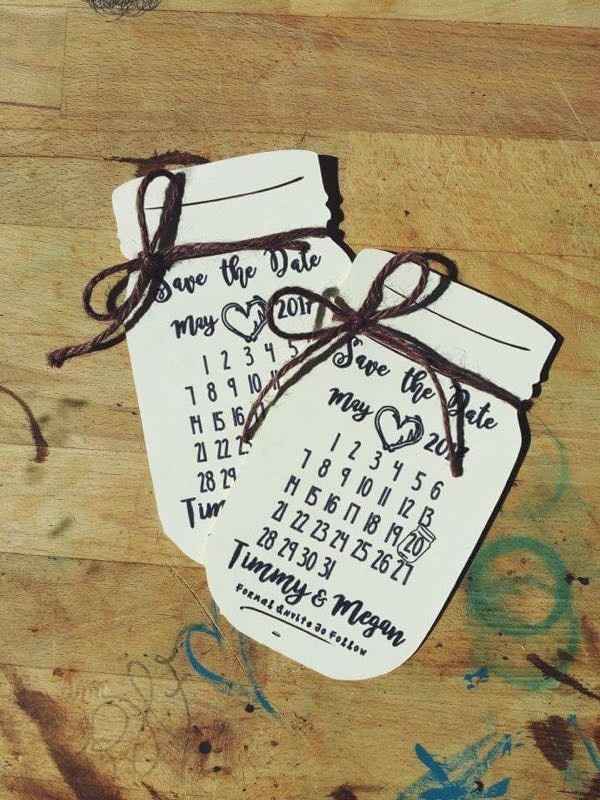 Save the Date
May 2017
1 2 3 4 5
7 8 9 10
14 15 16
21 22
28 29
Save the Date
May
1 2 3 4 5 6
7 8 9 10 11 12 13
14 15 16 17 18 19 20
21 22 23 24 25 26 27
28 29 30 31
Timmy & Megan
Formal Invite To Follow